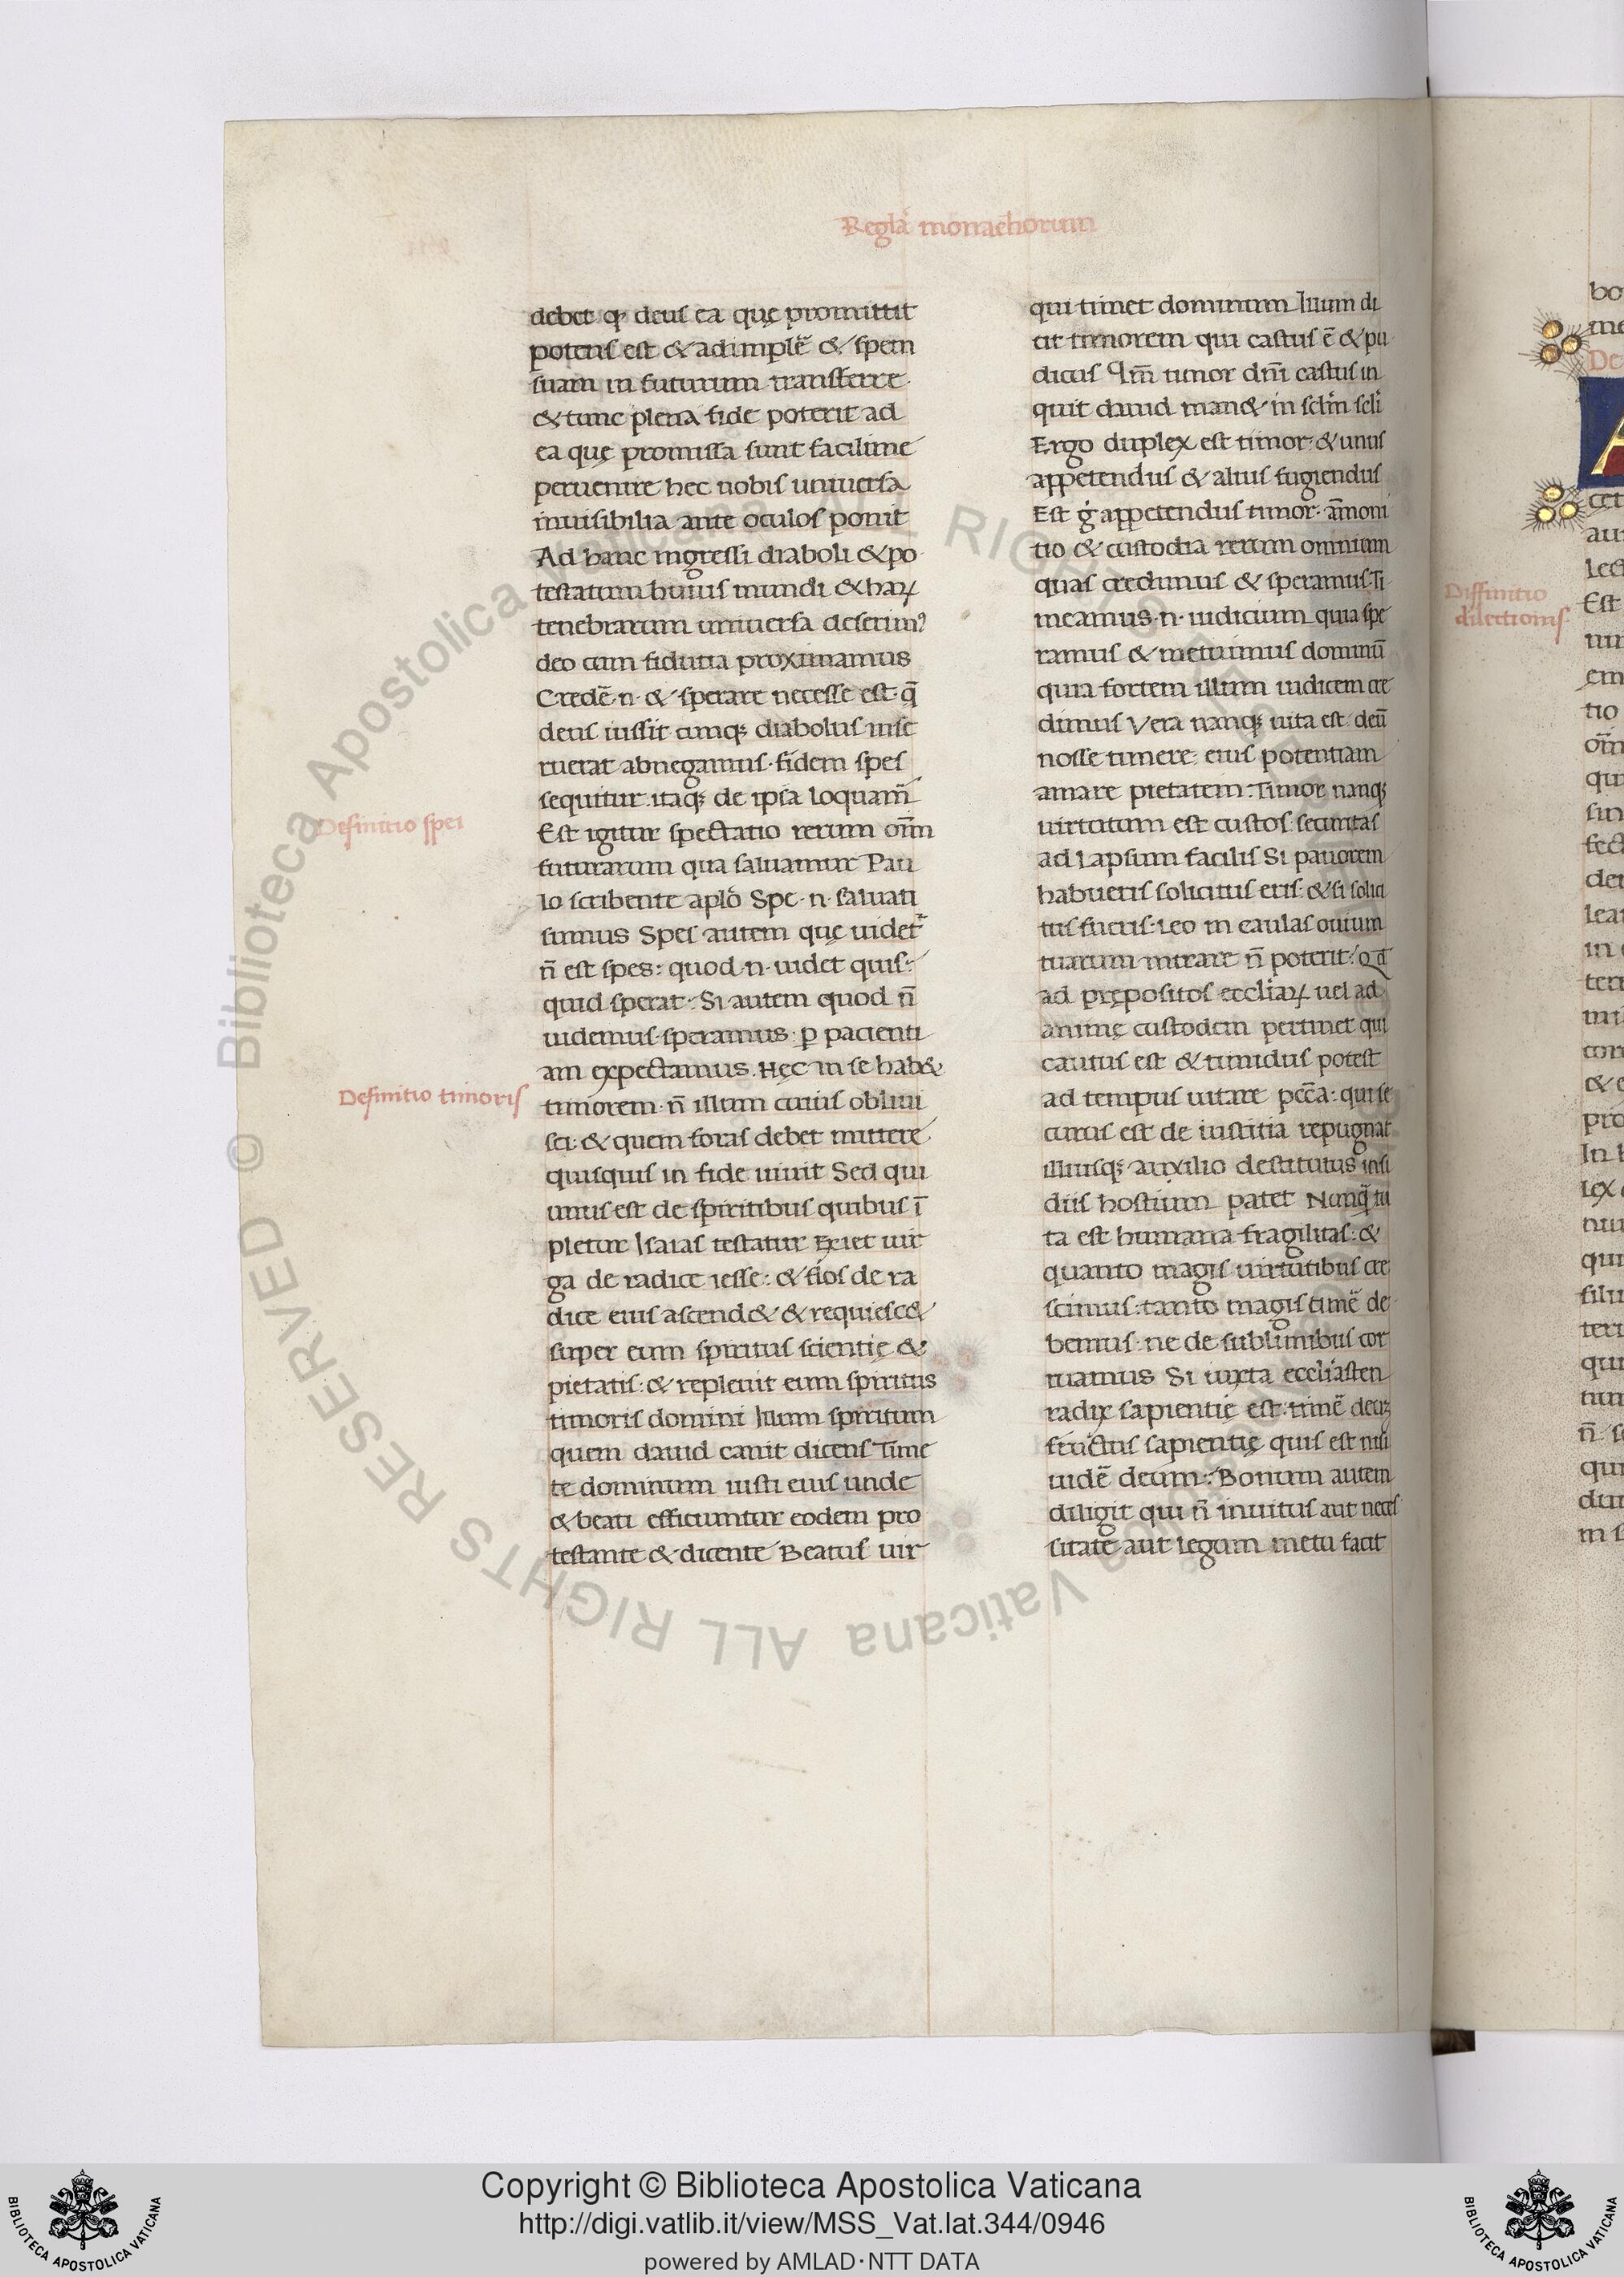 Regla monachorum
debet qꝫ deus ea quę promittit
potens est & adimplē & spem
suam in futurum transferre.
& tunc plena fide poterit ad
ea quę promissa sunt facilime
peruenire hec nobis uniuersa
inuisibilia ante oculos ponit
Ad hanc ingressi diaboli & po
testatum huius mundi & haꝝ
tenebrarum uniuersa deserim᷒
deo cum fidutia proximamus
Credē·n·& sperare necesse est·q̄
deus iussit cunqꝫ diabolus inse
ruerat abnegamus·fidem spes
sequitur itaqꝫ de ipsa loquam̄
Definitio spei
Est igitur spectatio rerum om̄n
futurarum qua saluamur Pau
lo scribente aplō Spe·n·saluati
sumus Spes autem quę uidet᷑
n̄ est spes: quod·n·uidet quis:
quid sperat: Si autem quod n̄
uidemus·speramus: ꝑ pacienti
am expectamus. Hęc in se hab&
Definitio timoris
timorem·n̄ illum cuius obliui
sci: & quem foras debet mittere
quisquis in fide uiuit Sed qui
unus est de spiritibus quibus ī
pletur Isaias testatur Exiet uir
ga de radice iesse: & flos de ra
dice eius ascend& & requiesc&
super eum spiritus scientię &
pietatis: & repleuit eum spiritus
timoris domini Illum spiritum
quem dauid canit dicens Time
te dominum iusti eius unde
& beati efficiuntur eodem pro
testante & dicente Beatus uir
qui timet dominum Illum di
cit timorem qui castus ē & pu
dicus Qm̄ timor dn̄i castus in
quit dauid man& in sclm̄ scli
Ergo duplex est timor: & unus
appetendus & alius fugiendus
Est g̊ appetendus timor: am̄oni
tio & custodia rerum omnium
quas credimus & speramus·Ti
meamus·n·iudicium quia spe
ramus & metuimus dominū
quia fortem illum iudicem cre
dimus Vera nanqꝫ uita est·deū
nosse timere: eius potentiam
amare pietatem: Timor nanqꝫ
uirtutum est custos: securitas
ad lapsum facilis Si pauorem
habueris solicitus eris: & si solici
tus fueris: Leo in caulas ouium
tuarum intrare n̄ poterit: Qđ
ad prępositos eccliaꝝ uel ad
animę custodem pertinet qui
cautus est & timidus potest
ad tempus uitare pccā: qui se
curus est de iustitia repugnat
illiusqꝫ auxilio destitutus insi
diis hostium patet Nunq̄ tu
ta est humana fragilitas: &
quanto magis uirtutibus cre
scimus: tanto magis timē de
bemus·ne de sublimibus cor
ruamus Si iuxta eccliasten
radix sapientię est: timē deuꝫ
fructus sapientię quis est nisi
uidē deum: Bonum autem
diligit qui n̄ inuitus aut neces
sitatē aut legum metu facit
De
Diffinitio
dilectionis
Est
Copyright © Biblioteca Apostolica Vaticana
http://digi.vatlib.it/view/MSS_Vat.lat.344/0946
powered by AMLAD·NTT DATA
BIBLIOTECA APOSTOLICA VATICANA
BIBLIOTECA APOSTOLICA VATICANA
© Biblioteca Apostolica Vaticana ALL RIGHTS RESERVED